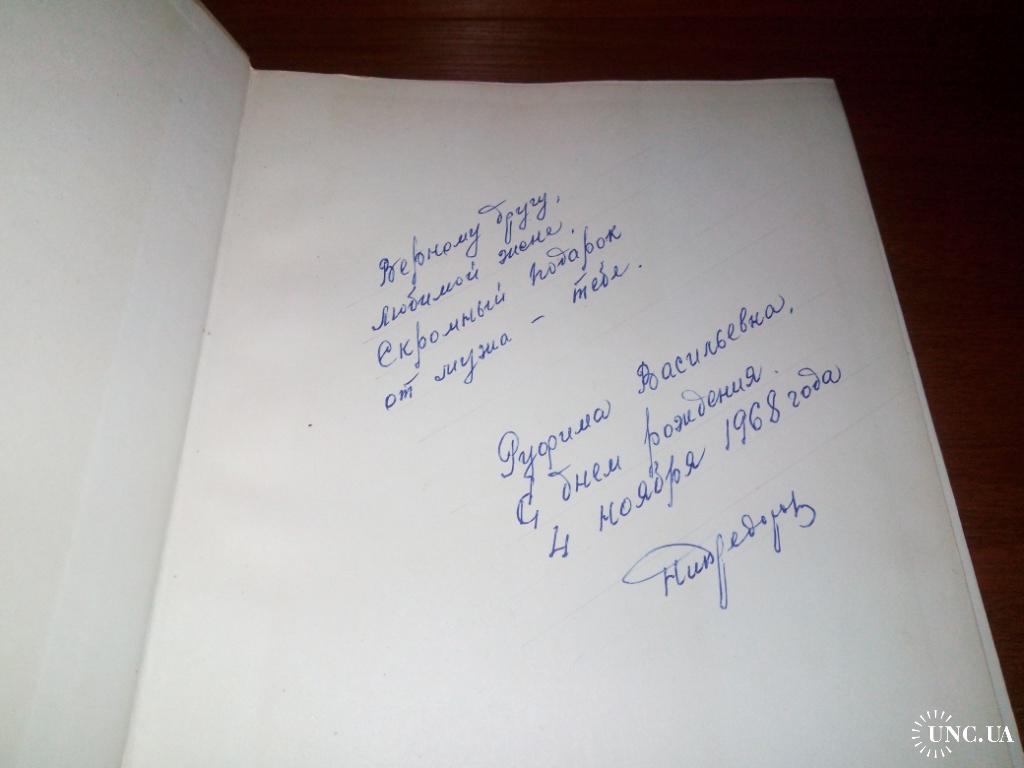 Верному другу,
любимой жене.
Скромный подарок
от мужа – тебе.
Руфима Васильевна,
С днем рождения.
4 ноября 1968 года
UNC.UA